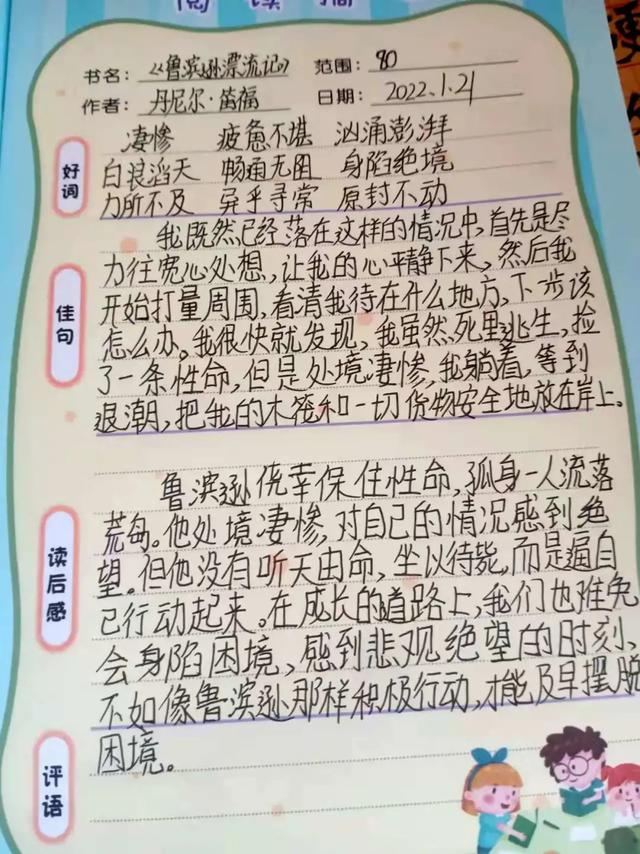 阅读摘
书名：《鲁滨逊漂流记》 范围：80
作者：丹尼尔·笛福 日期：2022.1.21
凄惨 疲惫不堪 汹涌澎湃
好词
白浪滔天 畅通无阻 身陷绝境
力所不及 异乎寻常 原封不动
我既然已经落在这样的情况中,首先是尽
力往宽心处想,让我的心平静下来,然后我
佳句
开始打量周围,看清我待在什么地方,下步该
怎么办。我很快就发现,我虽然死里逃生,捡
了一条性命,但是处境凄惨,我躺着,等到
退潮,把我的木筏和一切货物安全地放在岸上。
鲁滨逊侥幸保住性命,孤身一人流落
荒岛。他处境凄惨,对自己的情况感到绝
读后感
望。但他没有听天由命,坐以待毙,而是逼自
己行动起来。在成长的道路上,我们也难免
会身陷困境、感到悲观绝望的时刻,
不如像鲁滨逊那样积极行动,才能及早摆脱
困境。
评语